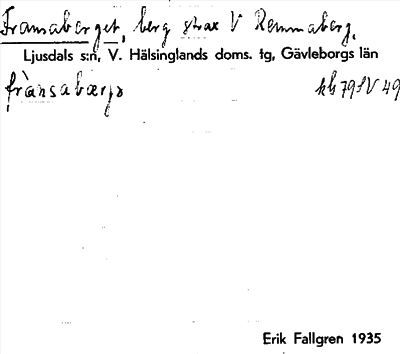 Fransaberget, berg strax V Remmaberg.
Ljusdals s:n, V. Hälsinglands doms. tg, Gävleborgs län
frànsabærjə kb 79 SV 49
Erik Fallgren 1935